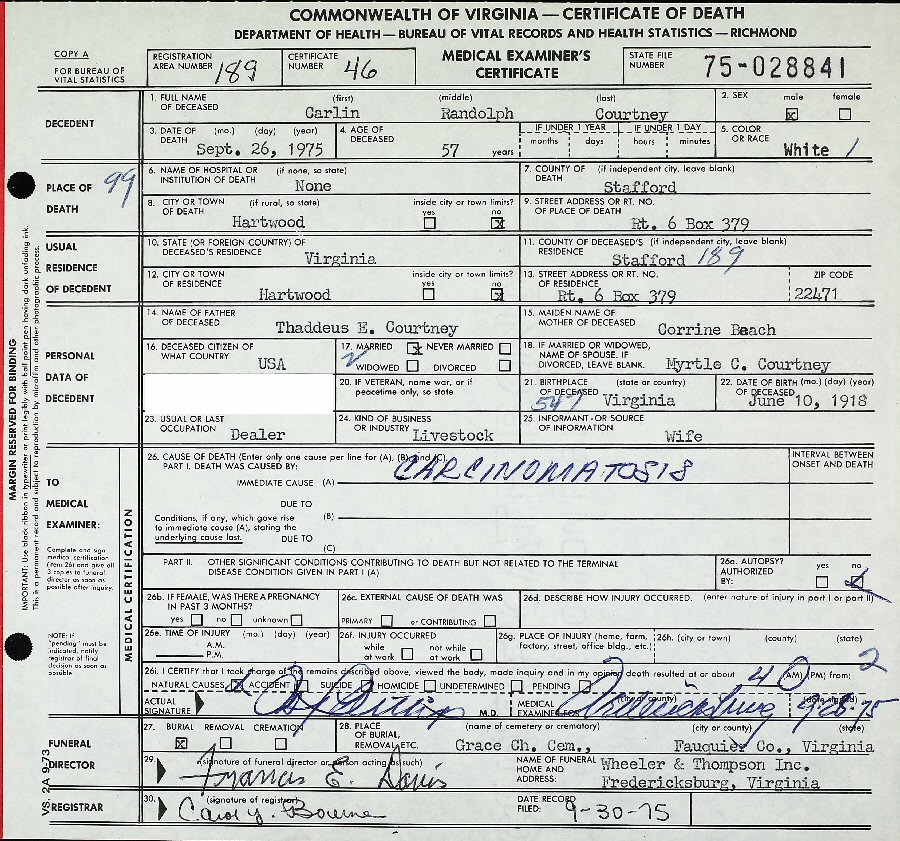 COMMONWEALTH OF VIRGINIA — CERTIFICATE OF DEATH
DEPARTMENT OF HEALTH — BUREAU OF VITAL RECORDS AND HEALTH STATISTICS — RICHMOND
COPY A
FOR BUREAU OF VITAL STATISTICS
REGISTRATION AREA NUMBER 189
CERTIFICATE NUMBER 46
MEDICAL EXAMINER'S CERTIFICATE
STATE FILE NUMBER 75-028841
DECEDENT
1. FULL NAME OF DECEASED (first) (middle) (last)
Carlin Randolph Courtney
2. SEX male female
3. DATE OF DEATH (mo.) (day) (year)
Sept. 26, 1975
4. AGE OF DECEASED
57 years
IF UNDER 1 YEAR IF UNDER 1 DAY
months days hours minutes
5. COLOR OR RACE
White /
PLACE OF DEATH
99
6. NAME OF HOSPITAL OR INSTITUTION OF DEATH (if none, so state)
None
7. COUNTY OF DEATH (if independent city, leave blank)
Stafford
8. CITY OR TOWN OF DEATH (if rural, so state)
Hartwood
inside city or town limits?
yes no
9. STREET ADDRESS OR RT. NO. OF PLACE OF DEATH
Rt. 6 Box 379
USUAL RESIDENCE OF DECEDENT
10. STATE (OR FOREIGN COUNTRY) OF DECEASED'S RESIDENCE
Virginia
11. COUNTY OF DECEASED'S RESIDENCE (if independent city, leave blank)
Stafford 189
12. CITY OR TOWN OF RESIDENCE
Hartwood
inside city or town limits?
yes no
13. STREET ADDRESS OR RT. NO. OF RESIDENCE
Rt. 6 Box 379
ZIP CODE
22471
PERSONAL DATA OF DECEDENT
14. NAME OF FATHER OF DECEASED
Thaddeus E. Courtney
15. MAIDEN NAME OF MOTHER OF DECEASED
Corrine Beach
16. DECEASED CITIZEN OF WHAT COUNTRY
USA
17. MARRIED NEVER MARRIED
WIDOWED DIVORCED
18. IF MARRIED OR WIDOWED, NAME OF SPOUSE. IF DIVORCED, LEAVE BLANK.
Myrtle C. Courtney
20. IF VETERAN, name war, or if peacetime only, so state
21. BIRTHPLACE OF DECEASED (state or country)
547 Virginia
22. DATE OF BIRTH (mo.) (day) (year) OF DECEASED
June 10, 1918
23. USUAL OR LAST OCCUPATION
Dealer
24. KIND OF BUSINESS OR INDUSTRY
Livestock
25. INFORMANT OR SOURCE OF INFORMATION
Wife
MARGIN RESERVED FOR BINDING
IMPORTANT: Use black ribbon in typewriter or print legibly with ball point pen having dark unfading ink.
This is a permanent record and subject to reproduction by microfilm and other photographic process.
TO MEDICAL EXAMINER:
Complete and sign medical certification (item 26) and give all 3 copies to funeral director as soon as possible after inquiry.
NOTE: If "pending" must be indicated, notify registrar of final decision as soon as possible
MEDICAL CERTIFICATION
26. CAUSE OF DEATH (Enter only one cause per line for (A), (B), and (C).
PART I. DEATH WAS CAUSED BY:
IMMEDIATE CAUSE (A) CARCINOMATOSIS
INTERVAL BETWEEN ONSET AND DEATH
DUE TO
(B)
Conditions, if any, which gave rise to immediate cause (A), stating the underlying cause last.
DUE TO
(C)
PART II. OTHER SIGNIFICANT CONDITIONS CONTRIBUTING TO DEATH BUT NOT RELATED TO THE TERMINAL DISEASE CONDITION GIVEN IN PART I (A)
26a. AUTOPSY? yes no
AUTHORIZED BY:
26b. IF FEMALE, WAS THERE A PREGNANCY IN PAST 3 MONTHS?
yes no unknown
26c. EXTERNAL CAUSE OF DEATH WAS
PRIMARY or CONTRIBUTING
26d. DESCRIBE HOW INJURY OCCURRED. (enter nature of injury in part I or part II)
26e. TIME OF INJURY (mo.) (day) (year)
A.M.
P.M.
26f. INJURY OCCURRED
while at work not while at work
26g. PLACE OF INJURY (home, farm, factory, street, office bldg., etc.)
26h. (city or town) (county) (state)
26i. I CERTIFY that I took charge of the remains described above, viewed the body, made inquiry and in my opinion death resulted at or about 4 (AM) (PM) from: 2
NATURAL CAUSES ACCIDENT SUICIDE HOMICIDE UNDETERMINED PENDING
ACTUAL SIGNATURE M.D.
MEDICAL EXAMINER FOR (city or county) Fredericksburg
(date signed) 9-28-75
FUNERAL DIRECTOR
27. BURIAL REMOVAL CREMATION
28. PLACE OF BURIAL, REMOVAL, ETC. (name of cemetery or crematory) (city or county) (state)
Grace Ch. Cem., Fauquier Co., Virginia
29. (signature of funeral director or person acting as such)
Francis E. Davis
NAME OF FUNERAL HOME AND ADDRESS:
Wheeler & Thompson Inc.
Fredericksburg, Virginia
REGISTRAR
30. (signature of registrar)
Carol Y. Bourne
DATE RECORD FILED: 9-30-75
VS. 2A 9-73